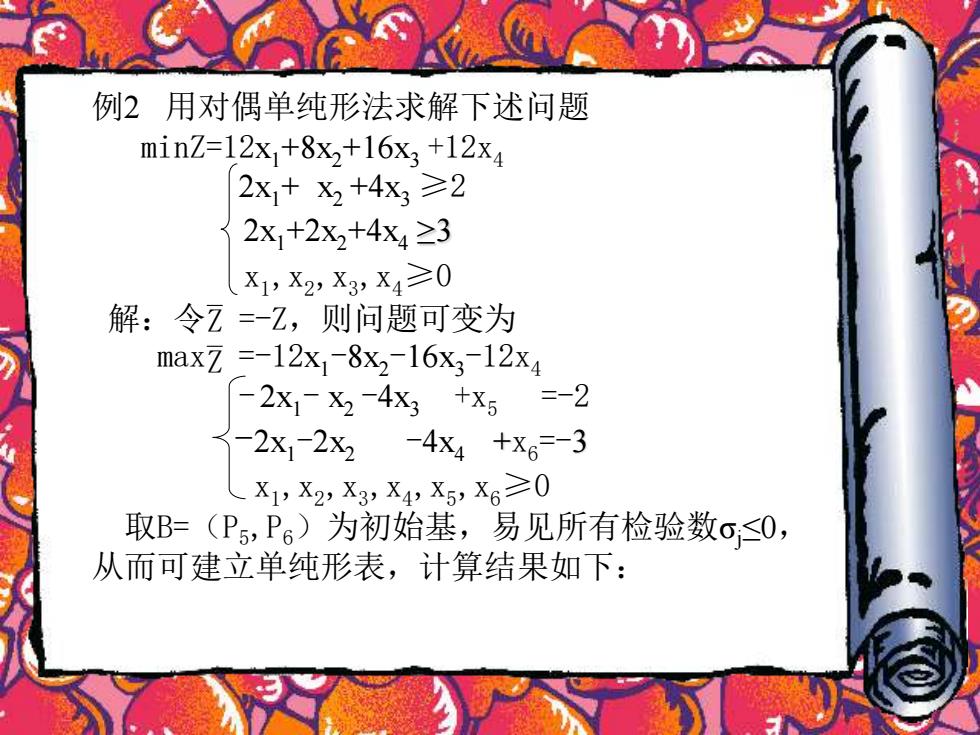 例2 用对偶单纯形法求解下述问题
minZ=12x₁+8x₂+16x₃ +12x₄
2x₁+ x₂ +4x₃ ≥2
2x₁+2x₂+4x₄ ≥3
x₁, x₂, x₃, x₄≥0
解：令Z̅ =-Z，则问题可变为
maxZ̅ =-12x₁-8x₂-16x₃-12x₄
-2x₁- x₂ -4x₃ +x₅ =-2
-2x₁-2x₂ -4x₄ +x₆=-3
x₁, x₂, x₃, x₄, x₅, x₆≥0
取B=（P₅, P₆）为初始基，易见所有检验数σⱼ≤0，
从而可建立单纯形表，计算结果如下：